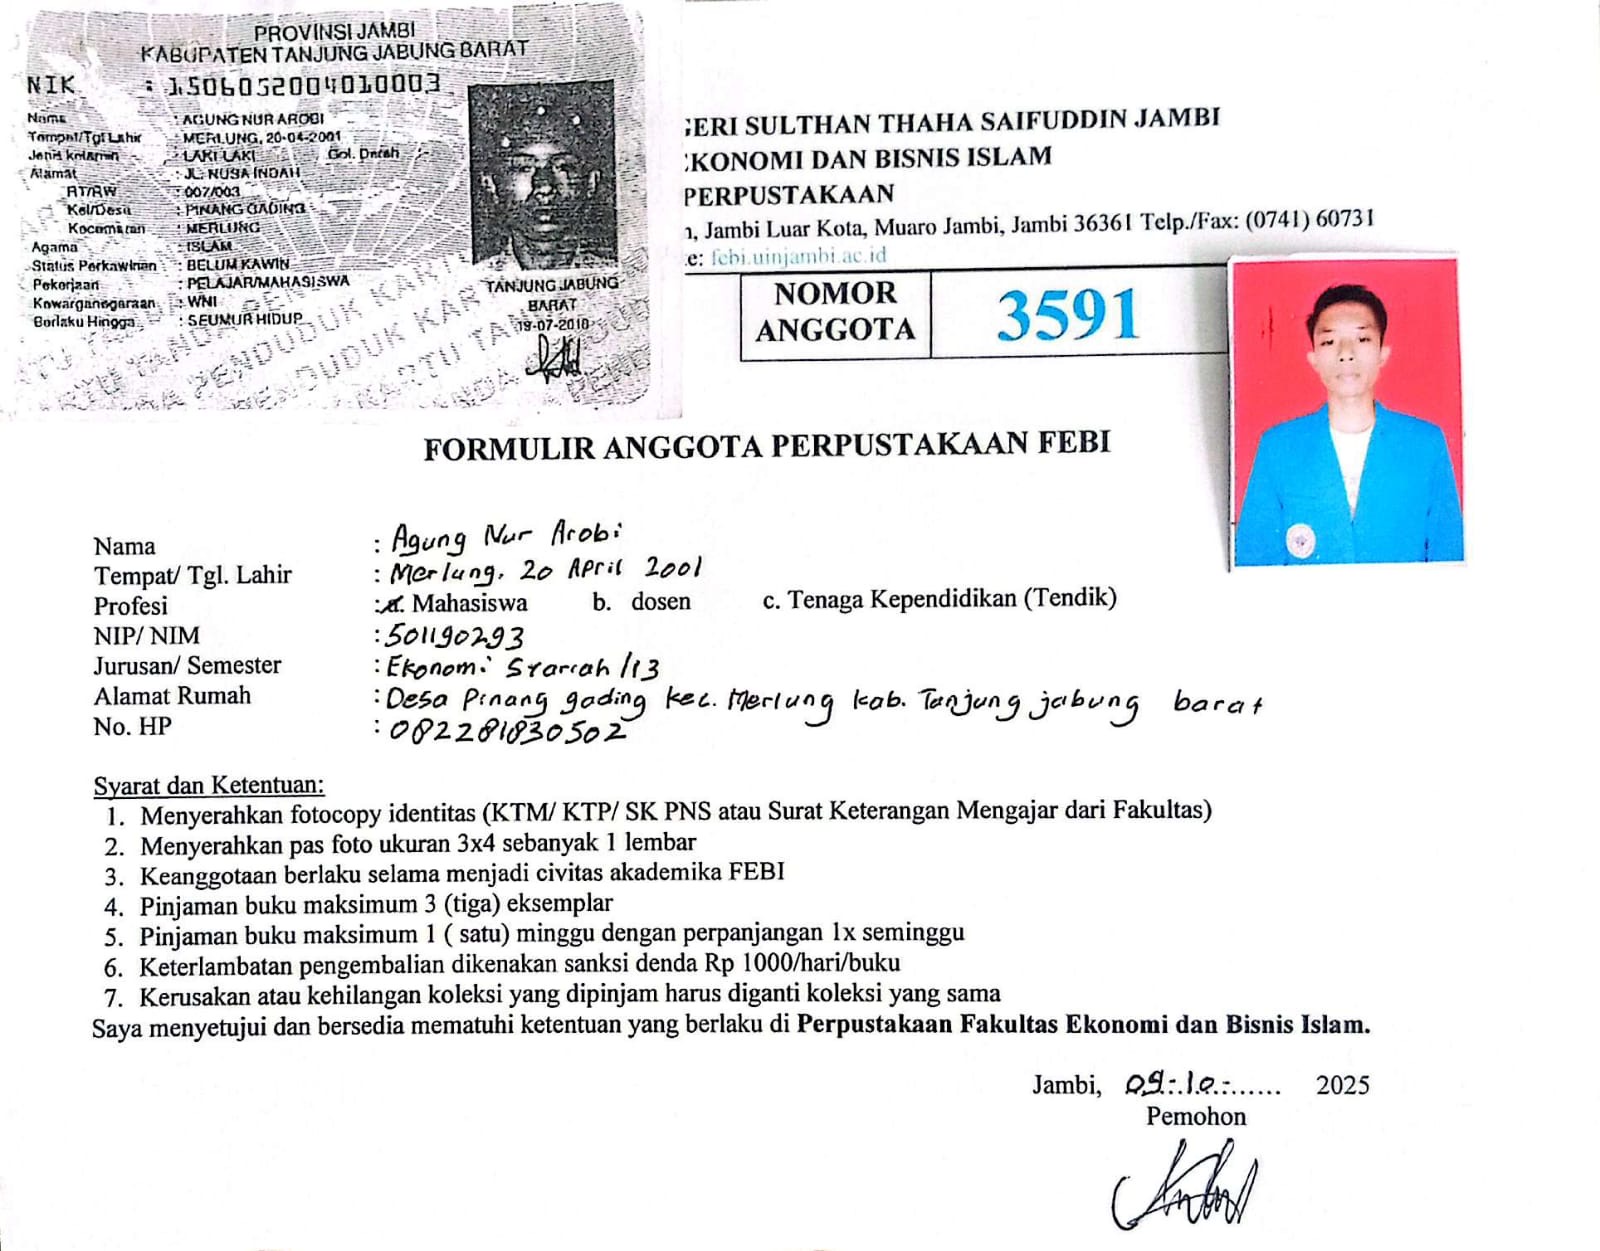 PROVINSI JAMBI
KABUPATEN TANJUNG JABUNG BARAT
NIK : 1506052004010003
Nama : AGUNG NUR AROBI
Tempat/Tgl Lahir : MERLUNG, 20-04-2001
Jenis kelamin : LAKI LAKI Gol. Darah : -
Alamat : JL. NUSA INDAH
RT/RW : 007/003
Kel/Desa : PINANG GADING
Kecamatan : MERLUNG
Agama : ISLAM
Status Perkawinan : BELUM KAWIN
Pekerjaan : PELAJAR/MAHASISWA
Kewarganegaraan : WNI
Berlaku Hingga : SEUMUR HIDUP
TANJUNG JABUNG
BARAT
19-07-2018
GERI SULTHAN THAHA SAIFUDDIN JAMBI
EKONOMI DAN BISNIS ISLAM
PERPUSTAKAAN
n, Jambi Luar Kota, Muaro Jambi, Jambi 36361 Telp./Fax: (0741) 60731
e: febi.uinjambi.ac.id
NOMOR
ANGGOTA
3591
FORMULIR ANGGOTA PERPUSTAKAAN FEBI
Nama : Agung Nur Arobi
Tempat/ Tgl. Lahir : Merlung, 20 April 2001
Profesi : a. Mahasiswa b. dosen c. Tenaga Kependidikan (Tendik)
NIP/ NIM : 501190293
Jurusan/ Semester : Ekonomi Syariah /13
Alamat Rumah : Desa Pinang gading kec. Merlung kab. Tanjung jabung barat
No. HP : 082281830502
Syarat dan Ketentuan:
1. Menyerahkan fotocopy identitas (KTM/ KTP/ SK PNS atau Surat Keterangan Mengajar dari Fakultas)
2. Menyerahkan pas foto ukuran 3x4 sebanyak 1 lembar
3. Keanggotaan berlaku selama menjadi civitas akademika FEBI
4. Pinjaman buku maksimum 3 (tiga) eksemplar
5. Pinjaman buku maksimum 1 ( satu) minggu dengan perpanjangan 1x seminggu
6. Keterlambatan pengembalian dikenakan sanksi denda Rp 1000/hari/buku
7. Kerusakan atau kehilangan koleksi yang dipinjam harus diganti koleksi yang sama
Saya menyetujui dan bersedia mematuhi ketentuan yang berlaku di Perpustakaan Fakultas Ekonomi dan Bisnis Islam.
Jambi, 09-10-...... 2025
Pemohon